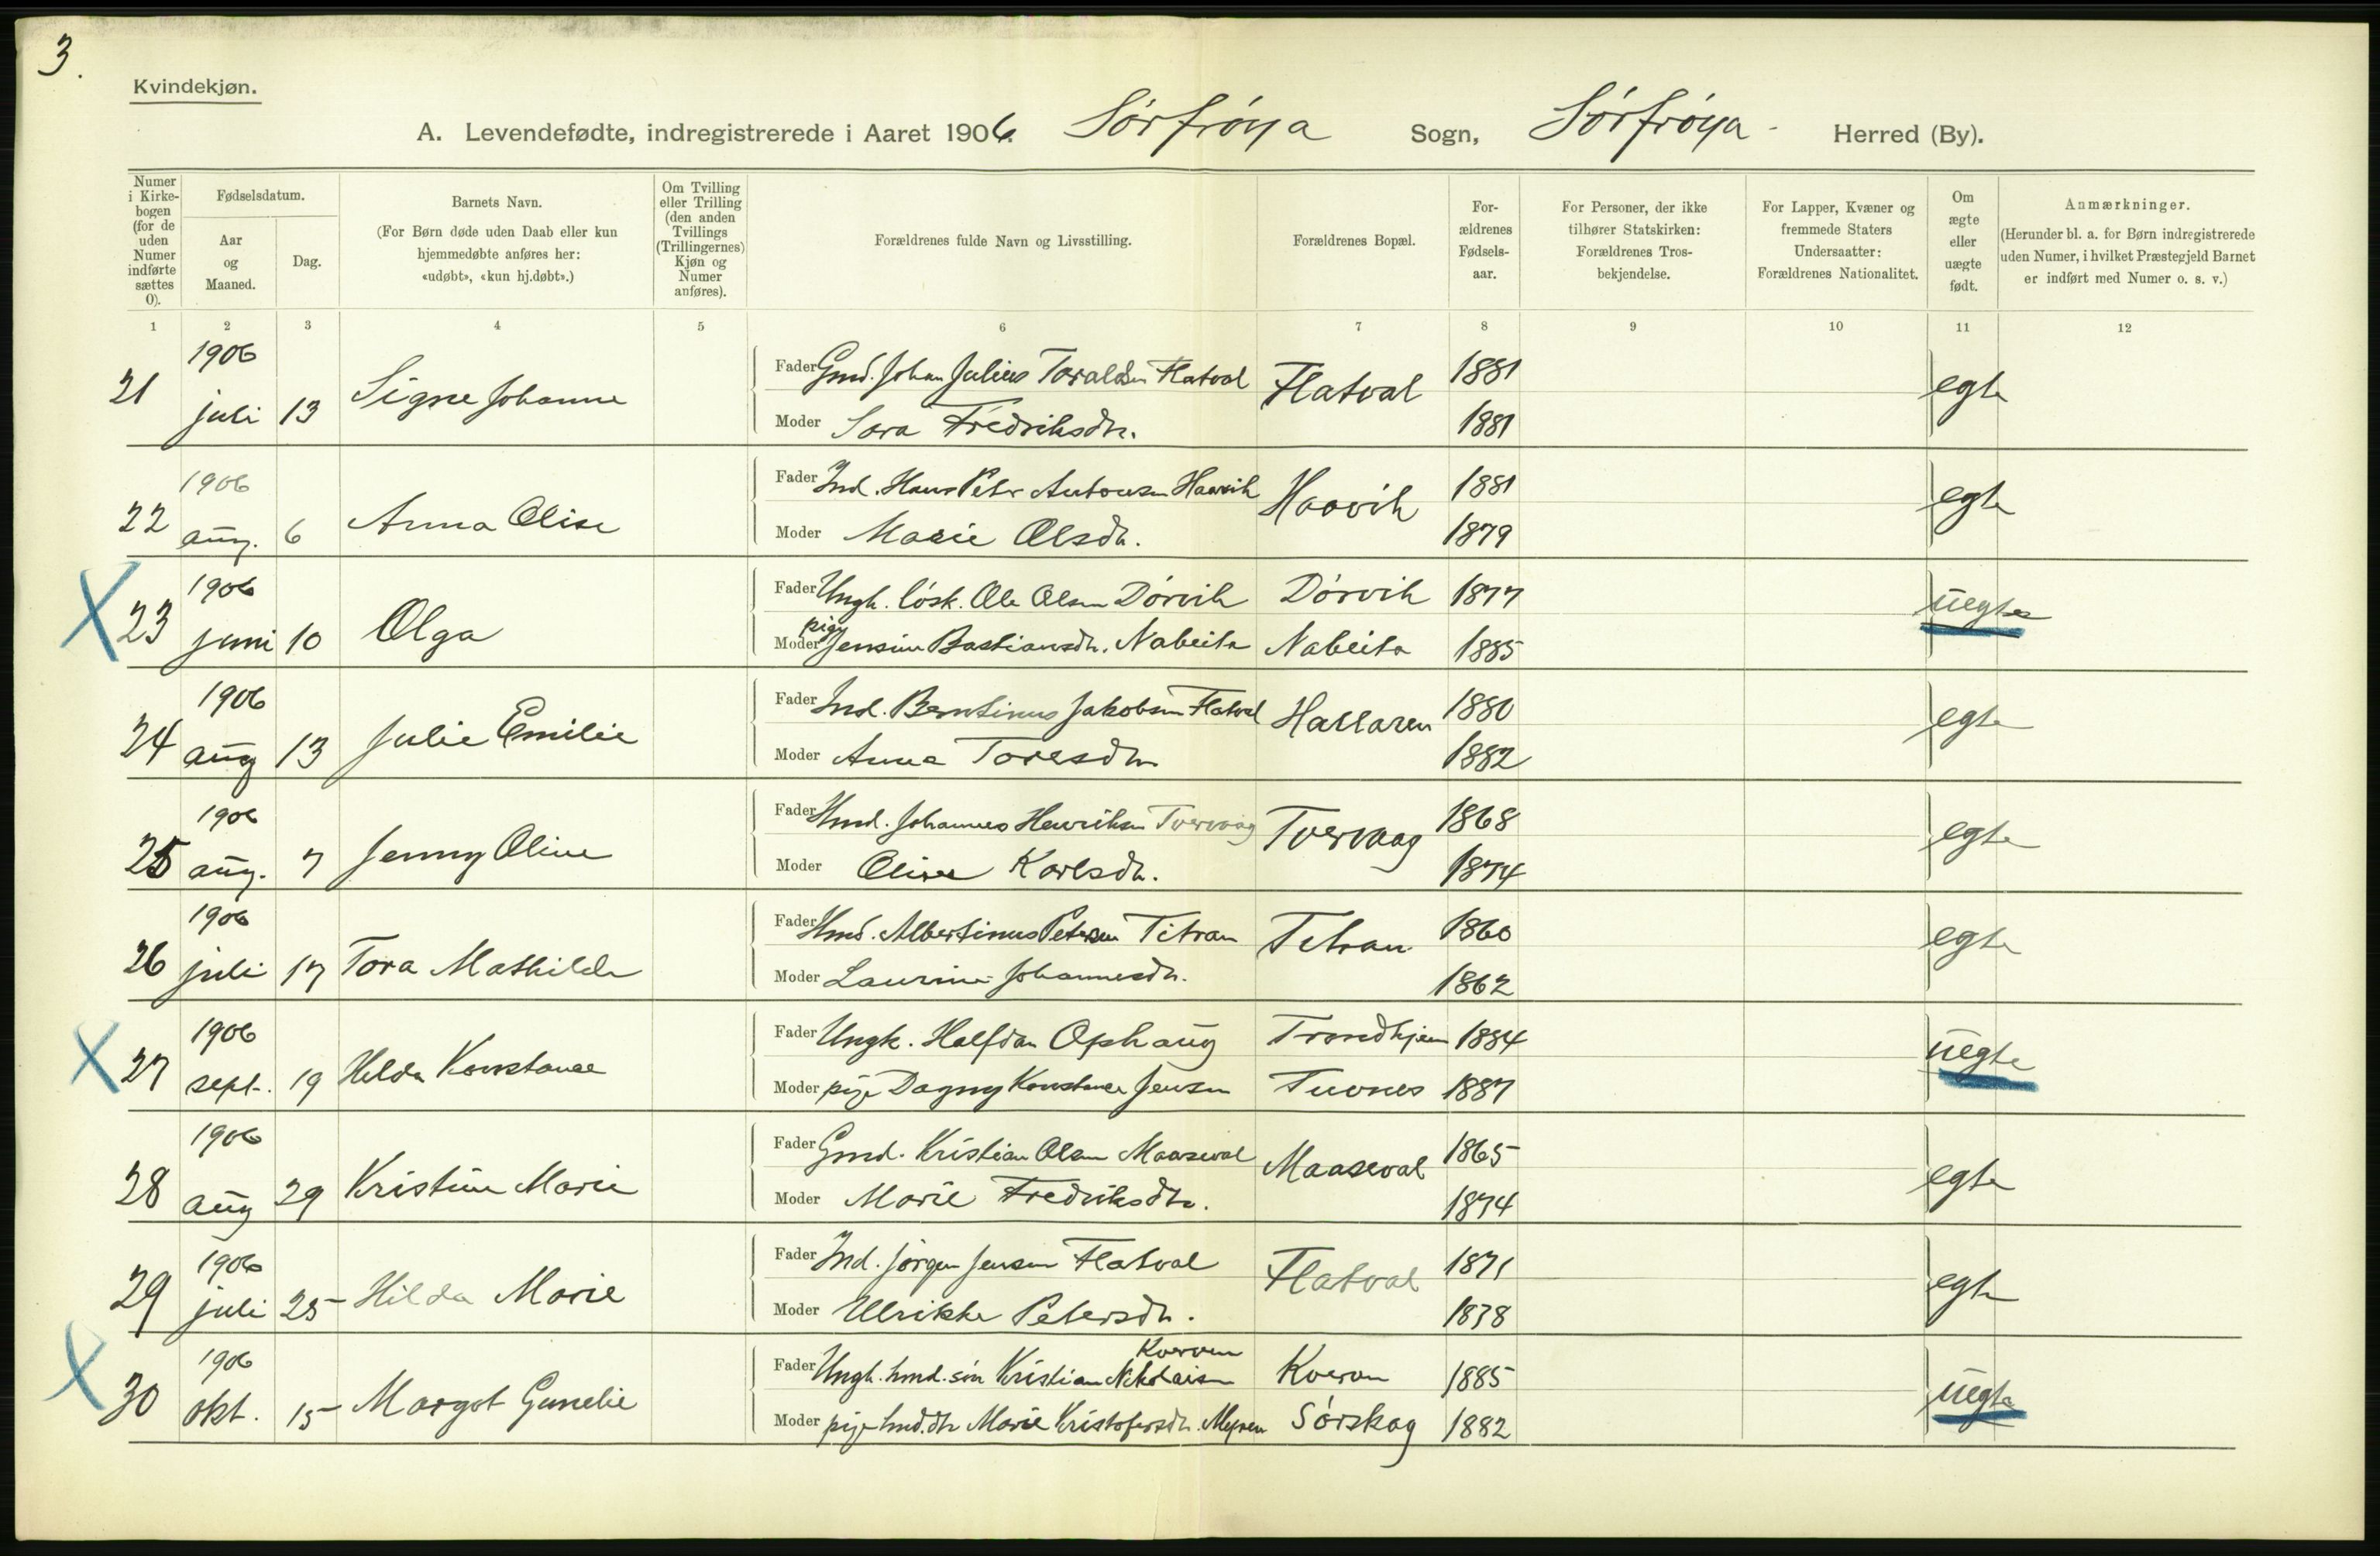 3.
Kvindekjøn.
A. Levendefødte, indregistrerede i Aaret 1906. Sörfröya Sogn, Sörfröya Herred (By).
Numer i Kirke-bogen (for de uden Numer indførte sættes 0).
Fødselsdatum.
Aar og Maaned.
Dag.
Barnets Navn.
(For Børn døde uden Daab eller kun hjemmedøbte anføres her: «udøbt», «kun hj.døbt».)
Om Tvilling eller Trilling (den anden Tvillings (Trillingernes) Kjøn og Numer anføres).
Forældrenes fulde Navn og Livsstilling.
Forældrenes Bopæl.
For-ældrenes Fødsels-aar.
For Personer, der ikke tilhører Statskirken: Forældrenes Tros-bekjendelse.
For Lapper, Kvæner og fremmede Staters Undersaatter: Forældrenes Nationalitet.
Om ægte eller uægte født.
Anmærkninger.
(Herunder bl. a. for Børn indregistrerede uden Numer, i hvilket Præstegjeld Barnet er indført med Numer o. s. v.)
1 2 3 4 5 6 7 8 9 10 11 12
21 1906 juli 13 Signe Johanne Fader Gmd. Johan Julius Toraldsen Flatval Flatval 1881 egte
Moder Sara Fredriksdtr. 1881
22 1906 aug. 6 Anna Olise Fader Ind. Hans Peter Antonsen Haavik Haavik 1881 egte
Moder Marie Olsdtr. 1879
X 23 1906 juni 10 Olga Fader Ungk. lösk. Ole Olsen Dörvik Dörvik 1877 uegte
Moder pige Jensine Bastiansdtr. Nabeita Nabeita 1885
24 1906 aug 13 Julie Emilie Fader Ind. Berntinus Jakobsen Flatval Hallaren 1880 egte
Moder Anna Toresdtr 1882
25 1906 aug. 7 Jenny Oline Fader Hmd. Johannes Henriksen Tvervaag Tvervaag 1868 egte
Moder Oline Karlsdtr. 1874
26 1906 juli 17 Tora Mathilde Fader Hmd. Albertinus Petersen Titran Titran 1860 egte
Moder Laurine Johannesdtr. 1862
X 27 1906 sept. 19 Hilda Konstance Fader Ungk. Halfdan Ophaug Trondhjem 1884 uegte
Moder pige Dagny Konstance Jensen Tuvnes 1887
28 1906 aug 29 Kristine Marie Fader Gmd. Kristian Olsen Maaseval Maaseval 1865 egte
Moder Marie Fredriksdtr. 1874
29 1906 juli 25 Hilda Marie Fader Ind. Jörgen Jensen Flatval Flatval 1871 egte
Moder Ulrikke Petersdtr. 1878
X 30 1906 okt. 15 Margot Gunelie Fader Ungk. hmd. sön Kristian Nikolaisen Kverven Kverven 1885 uegte
Moder pige hmd. dtr Marie Kristofersdtr. Myren Sörskag 1882